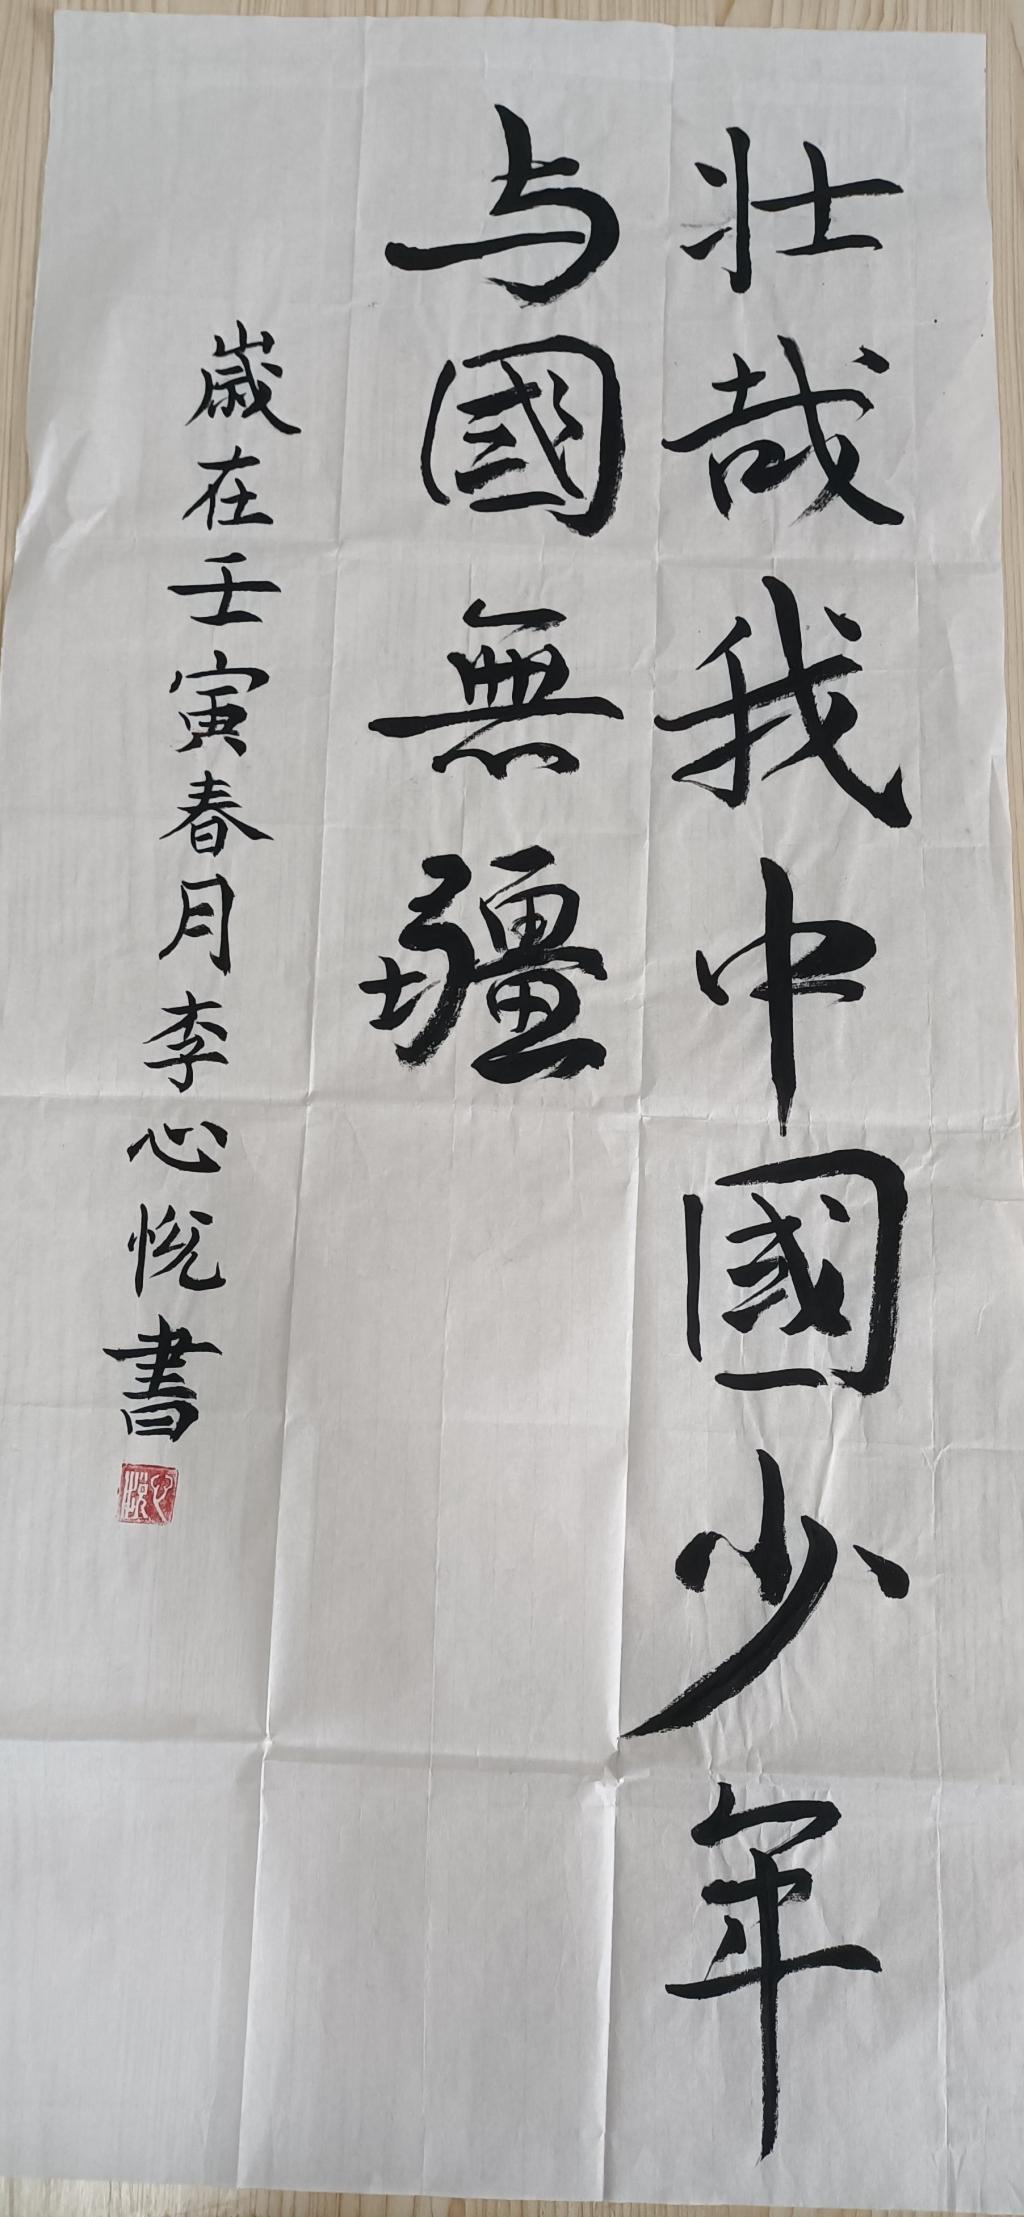 壮哉我中國少年
与國無疆
歲在壬寅春月李心悦書
心悦